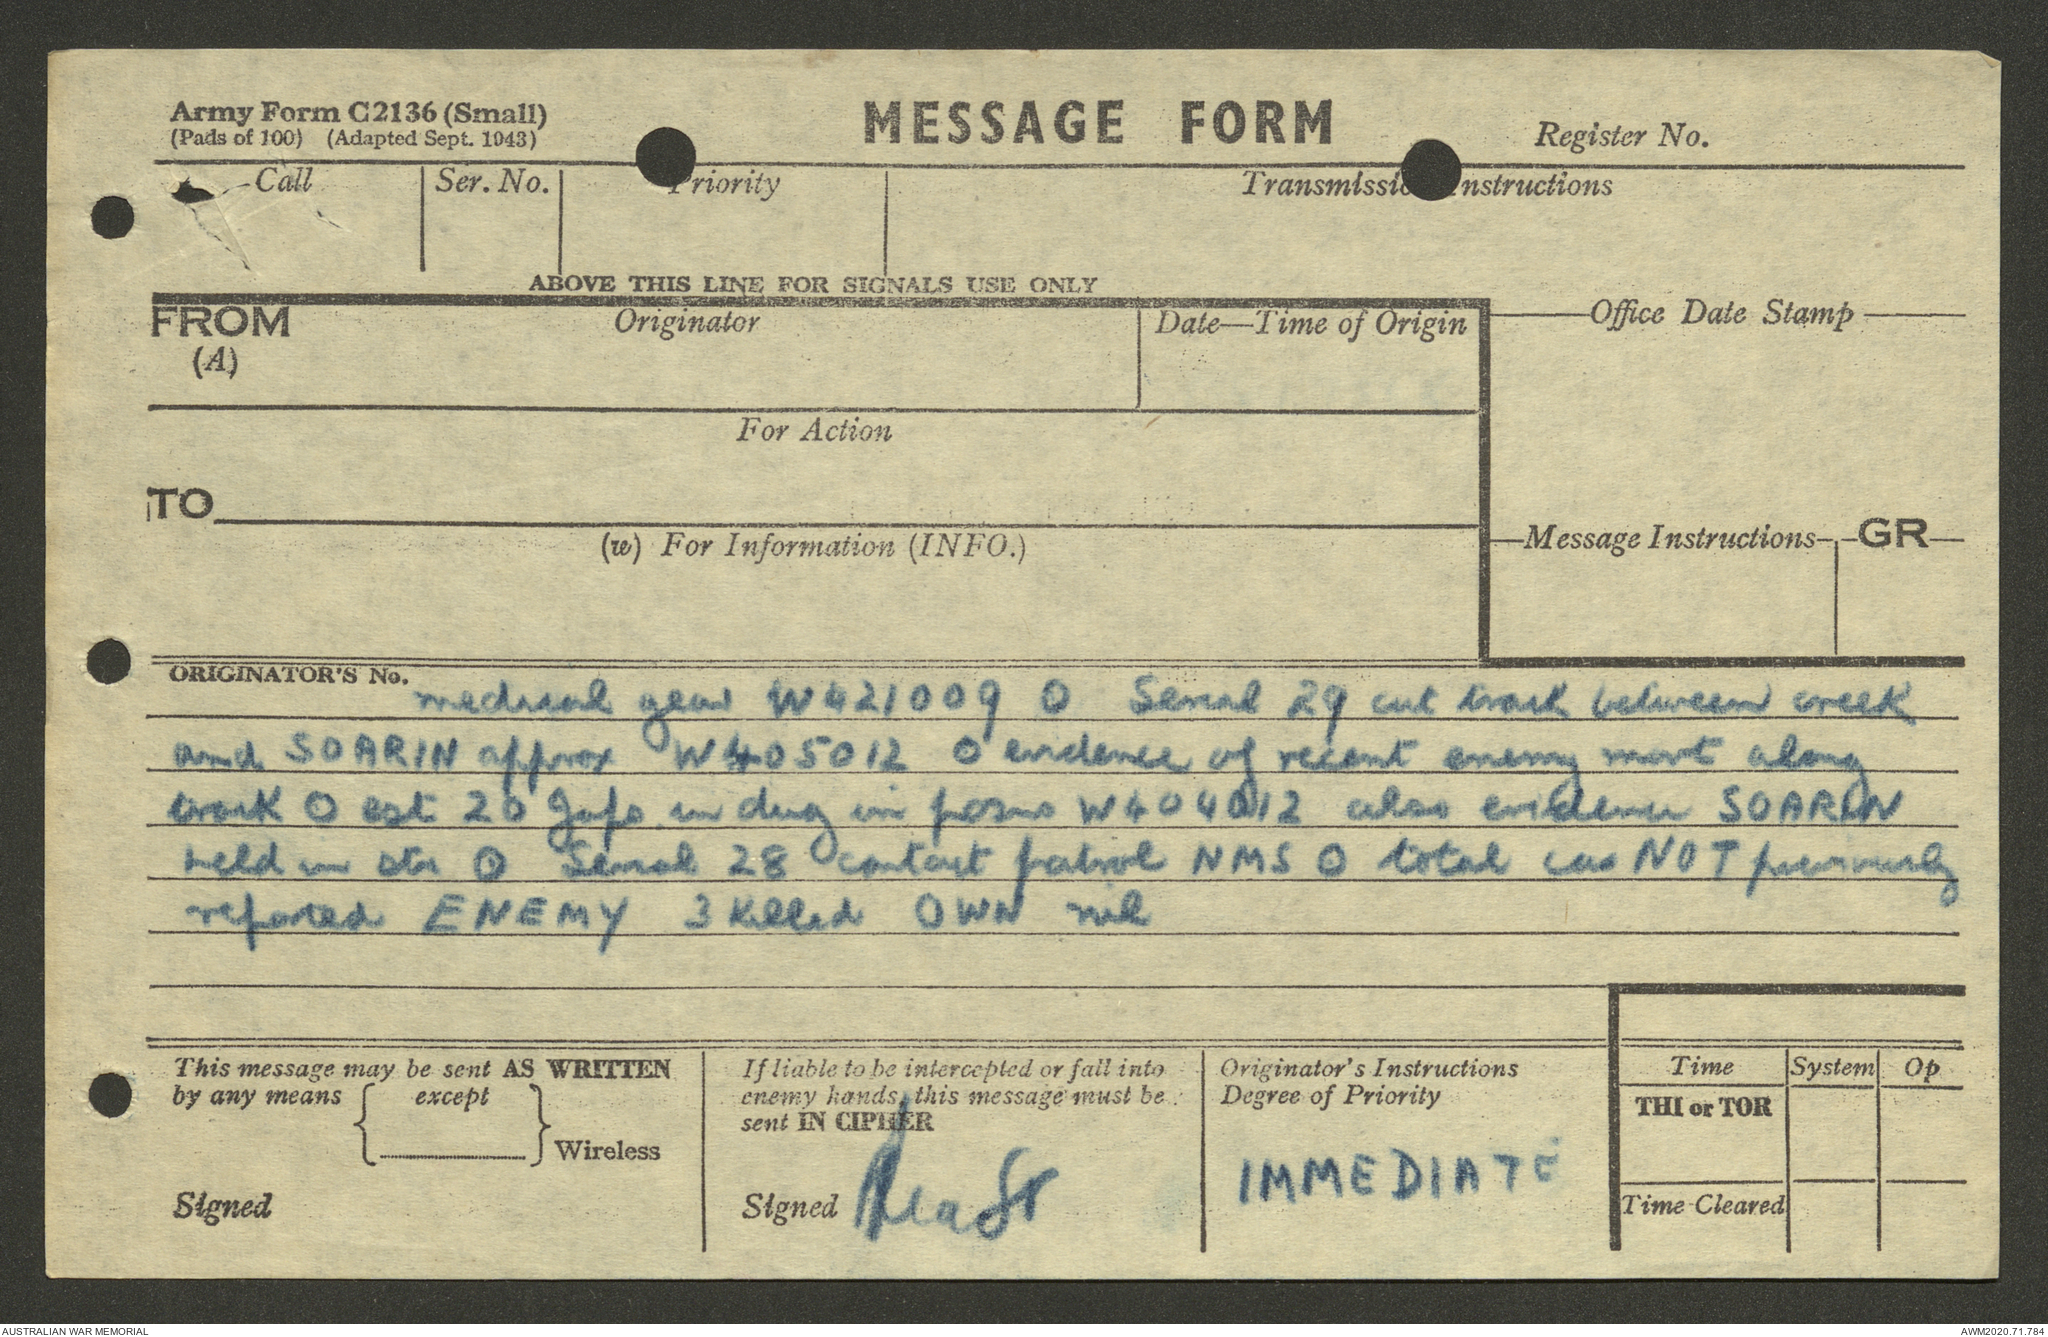 Army Form C2136 (Small)
(Pads of 100) (Adapted Sept. 1943)
MESSAGE FORM
Register No.
Call Ser. No. Priority Transmissio Instructions
ABOVE THIS LINE FOR SIGNALS USE ONLY
FROM
(A)
Originator
Date—Time of Origin
Office Date Stamp
For Action
TO
(w) For Information (INFO.)
Message Instructions GR
ORIGINATOR'S No.
medical gear W421009 O Serial 29 cut track between creek
and SOARIN approx W405012 O evidence of recent enemy mov't along
track O est 20 Japs in dug in posns W404012 also evidence SOARIN
held in str O Serial 28 contact patrol NMS O total cas NOT previously
reported ENEMY 3 killed OWN nil
This message may be sent AS WRITTEN
by any means except
Wireless
Signed
If liable to be intercepted or fall into
enemy hands, this message must be
sent IN CIPHER
Signed
Originator's Instructions
Degree of Priority
IMMEDIATE
Time System Op
THI or TOR
Time Cleared
AUSTRALIAN WAR MEMORIAL
AWM2020.71.784